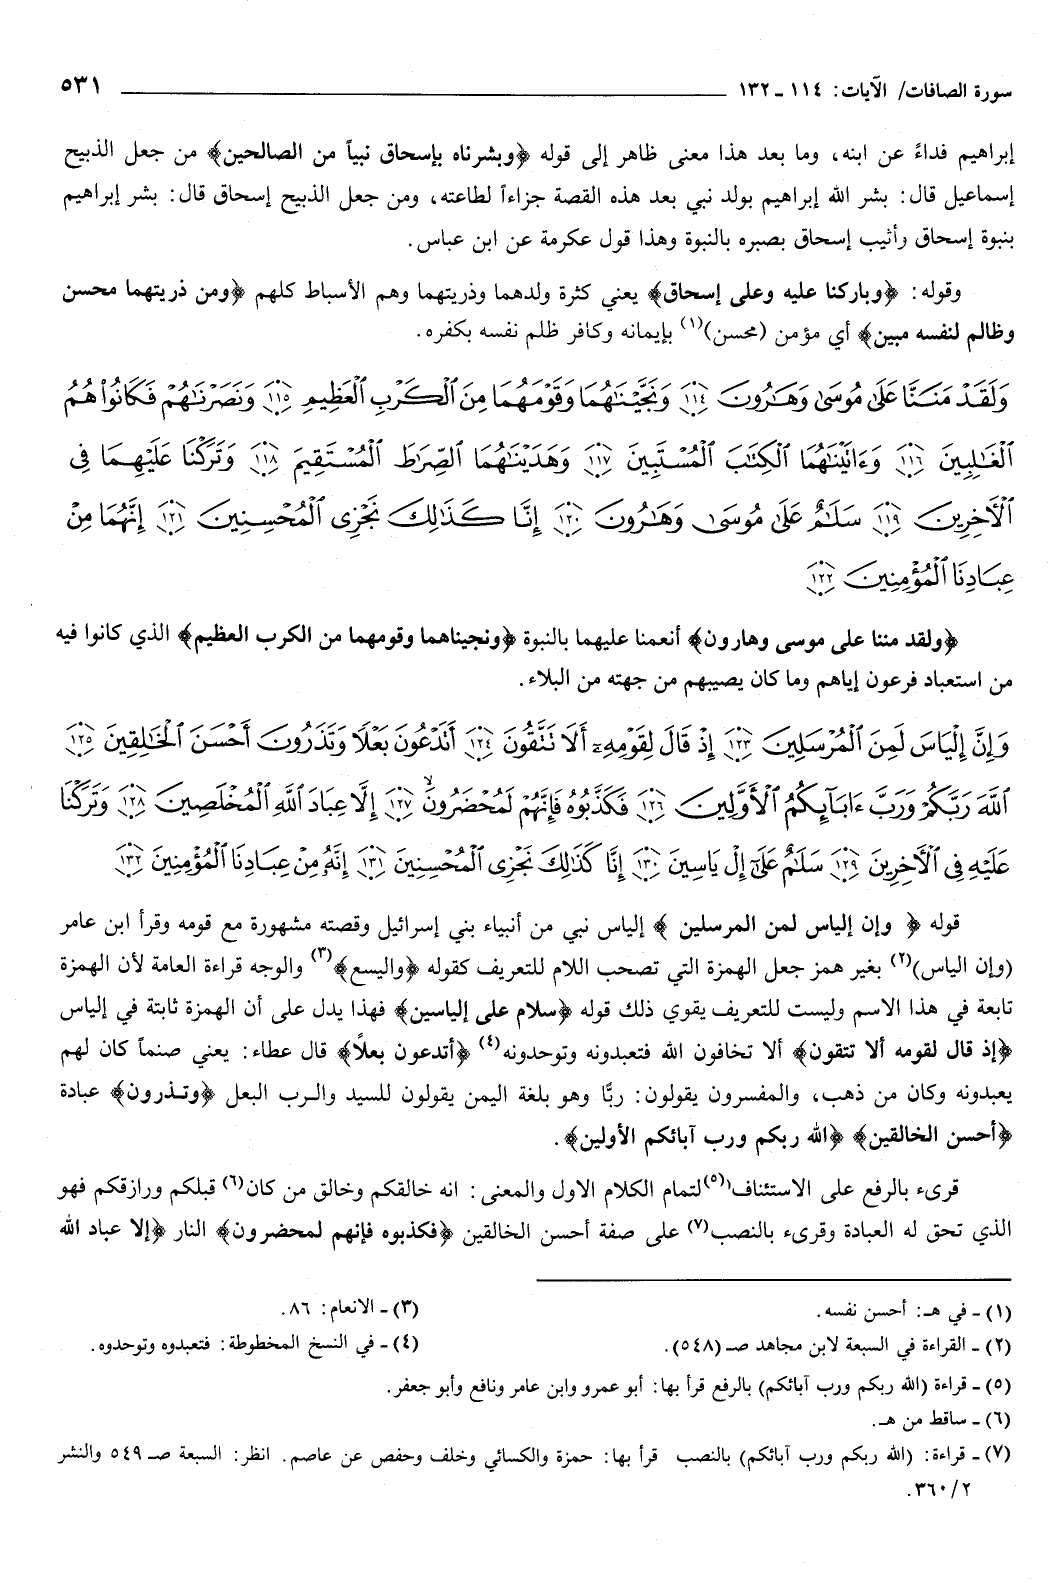 سورة الصافات/ الآيات: ١١٤ ـ ١٣٢ ٥٣١
إبراهيم فداءً عن ابنه، وما بعد هذا معنى ظاهر إلى قوله ﴿وبشرناه بإسحاق نبياً من الصالحين﴾ من جعل الذبيح
إسماعيل قال: بشر الله إبراهيم بولد نبي بعد هذه القصة جزاءاً لطاعته، ومن جعل الذبيح إسحاق قال: بشر إبراهيم
بنبوة إسحاق وأثيب إسحاق بصبره بالنبوة وهذا قول عكرمة عن ابن عباس.
وقوله: ﴿وباركنا عليه وعلى إسحاق﴾ يعني كثرة ولدهما وذريتهما وهم الأسباط كلهم ﴿ومن ذريتهما محسن
وظالم لنفسه مبين﴾ أي مؤمن (محسن)(١) بإيمانه وكافر ظلم نفسه بكفره.
وَلَقَدْ مَنَنَّا عَلَىٰ مُوسَىٰ وَهَٰرُونَ ١١٤ وَنَجَّيْنَٰهُمَا وَقَوْمَهُمَا مِنَ ٱلْكَرْبِ ٱلْعَظِيمِ ١١٥ وَنَصَرْنَٰهُمْ فَكَانُوا۟ هُمُ
ٱلْغَٰلِبِينَ ١١٦ وَءَاتَيْنَٰهُمَا ٱلْكِتَٰبَ ٱلْمُسْتَبِينَ ١١٧ وَهَدَيْنَٰهُمَا ٱلصِّرَٰطَ ٱلْمُسْتَقِيمَ ١١٨ وَتَرَكْنَا عَلَيْهِمَا فِى
ٱلْأَخِرِينَ ١١٩ سَلَٰمٌ عَلَىٰ مُوسَىٰ وَهَٰرُونَ ١٢٠ إِنَّا كَذَٰلِكَ نَجْزِى ٱلْمُحْسِنِينَ ١٢١ إِنَّهُمَا مِنْ
عِبَادِنَا ٱلْمُؤْمِنِينَ ١٢٢
﴿ولقد مننا على موسى وهارون﴾ أنعمنا عليهما بالنبوة ﴿ونجيناهما وقومهما من الكرب العظيم﴾ الذي كانوا فيه
من استعباد فرعون إياهم وما كان يصيبهم من جهته من البلاء.
وَإِنَّ إِلْيَاسَ لَمِنَ ٱلْمُرْسَلِينَ ١٢٣ إِذْ قَالَ لِقَوْمِهِۦٓ أَلَا تَتَّقُونَ ١٢٤ أَتَدْعُونَ بَعْلًا وَتَذَرُونَ أَحْسَنَ ٱلْخَٰلِقِينَ ١٢٥
ٱللَّهَ رَبَّكُمْ وَرَبَّ ءَابَآئِكُمُ ٱلْأَوَّلِينَ ١٢٦ فَكَذَّبُوهُ فَإِنَّهُمْ لَمُحْضَرُونَ ١٢٧ إِلَّا عِبَادَ ٱللَّهِ ٱلْمُخْلَصِينَ ١٢٨ وَتَرَكْنَا
عَلَيْهِ فِى ٱلْأَخِرِينَ ١٢٩ سَلَٰمٌ عَلَىٰٓ إِلْ يَاسِينَ ١٣٠ إِنَّا كَذَٰلِكَ نَجْزِى ٱلْمُحْسِنِينَ ١٣١ إِنَّهُۥ مِنْ عِبَادِنَا ٱلْمُؤْمِنِينَ ١٣٢
قوله ﴿ وإن إلياس لمن المرسلين ﴾ إلياس نبي من أنبياء بني إسرائيل وقصته مشهورة مع قومه وقرأ ابن عامر
(وإن الياس)(٢) بغير همز جعل الهمزة التي تصحب اللام للتعريف كقوله ﴿واليسع﴾(٣) والوجه قراءة العامة لأن الهمزة
تابعة في هذا الاسم وليست للتعريف يقوي ذلك قوله ﴿سلام على إلياسين﴾ فهذا يدل على أن الهمزة ثابتة في إلياس
﴿إذ قال لقومه ألا تتقون﴾ ألا تخافون الله فتعبدونه وتوحدونه(٤) ﴿أتدعون بعلاً﴾ قال عطاء: يعني صنماً كان لهم
يعبدونه وكان من ذهب، والمفسرون يقولون: ربًّا وهو بلغة اليمن يقولون للسيد والـرب البعل ﴿وتـذرون﴾ عبادة
﴿أحسن الخالقين﴾ ﴿الله ربكم ورب آبائكم الأولين﴾.
قرىء بالرفع على الاستئناف(٥) لتمام الكلام الاول والمعنى: انه خالقكم وخالق من كان(٦) قبلكم ورازقكم فهو
الذي تحق له العبادة وقرىء بالنصب(٧) على صفة أحسن الخالقين ﴿فكذبوه فإنهم لمحضرون﴾ النار ﴿إلا عباد الله
(١) ـ في هـ: أحسن نفسه.
(٢) ـ القراءة في السبعة لابن مجاهد صـ (٥٤٨).
(٣) ـ الانعام: ٨٦.
(٤) ـ في النسخ المخطوطة: فتعبدوه وتوحدوه.
(٥) ـ قراءة (الله ربكم ورب آبائكم) بالرفع قرأ بها: أبو عمرو وابن عامر ونافع وأبو جعفر.
(٦) ـ ساقط من هـ.
(٧) ـ قراءة: (الله ربكم ورب آبائكم) بالنصب قرأ بها: حمزة والكسائي وخلف وحفص عن عاصم. انظر: السبعة صـ ٥٤٩ والنشر
٢/ ٣٦٠.